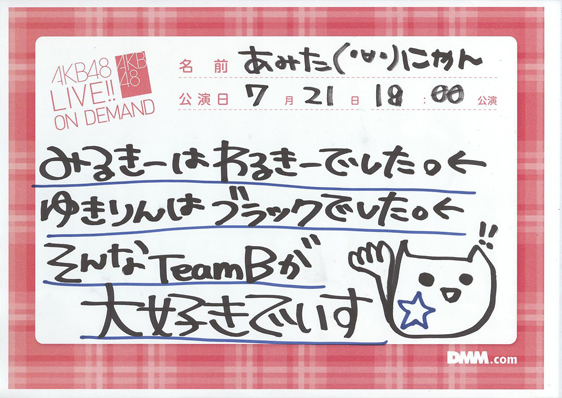 AKB48
LIVE!!
ON DEMAND
AKB
48
名前 あみた(・∀・)にゃん
公演日 7月21日 18:00公演
みるきーはわるきーでした。←
ゆきりんはブラックでした。←
そんなTeamBが
大好きでいす
!!
DMM.com